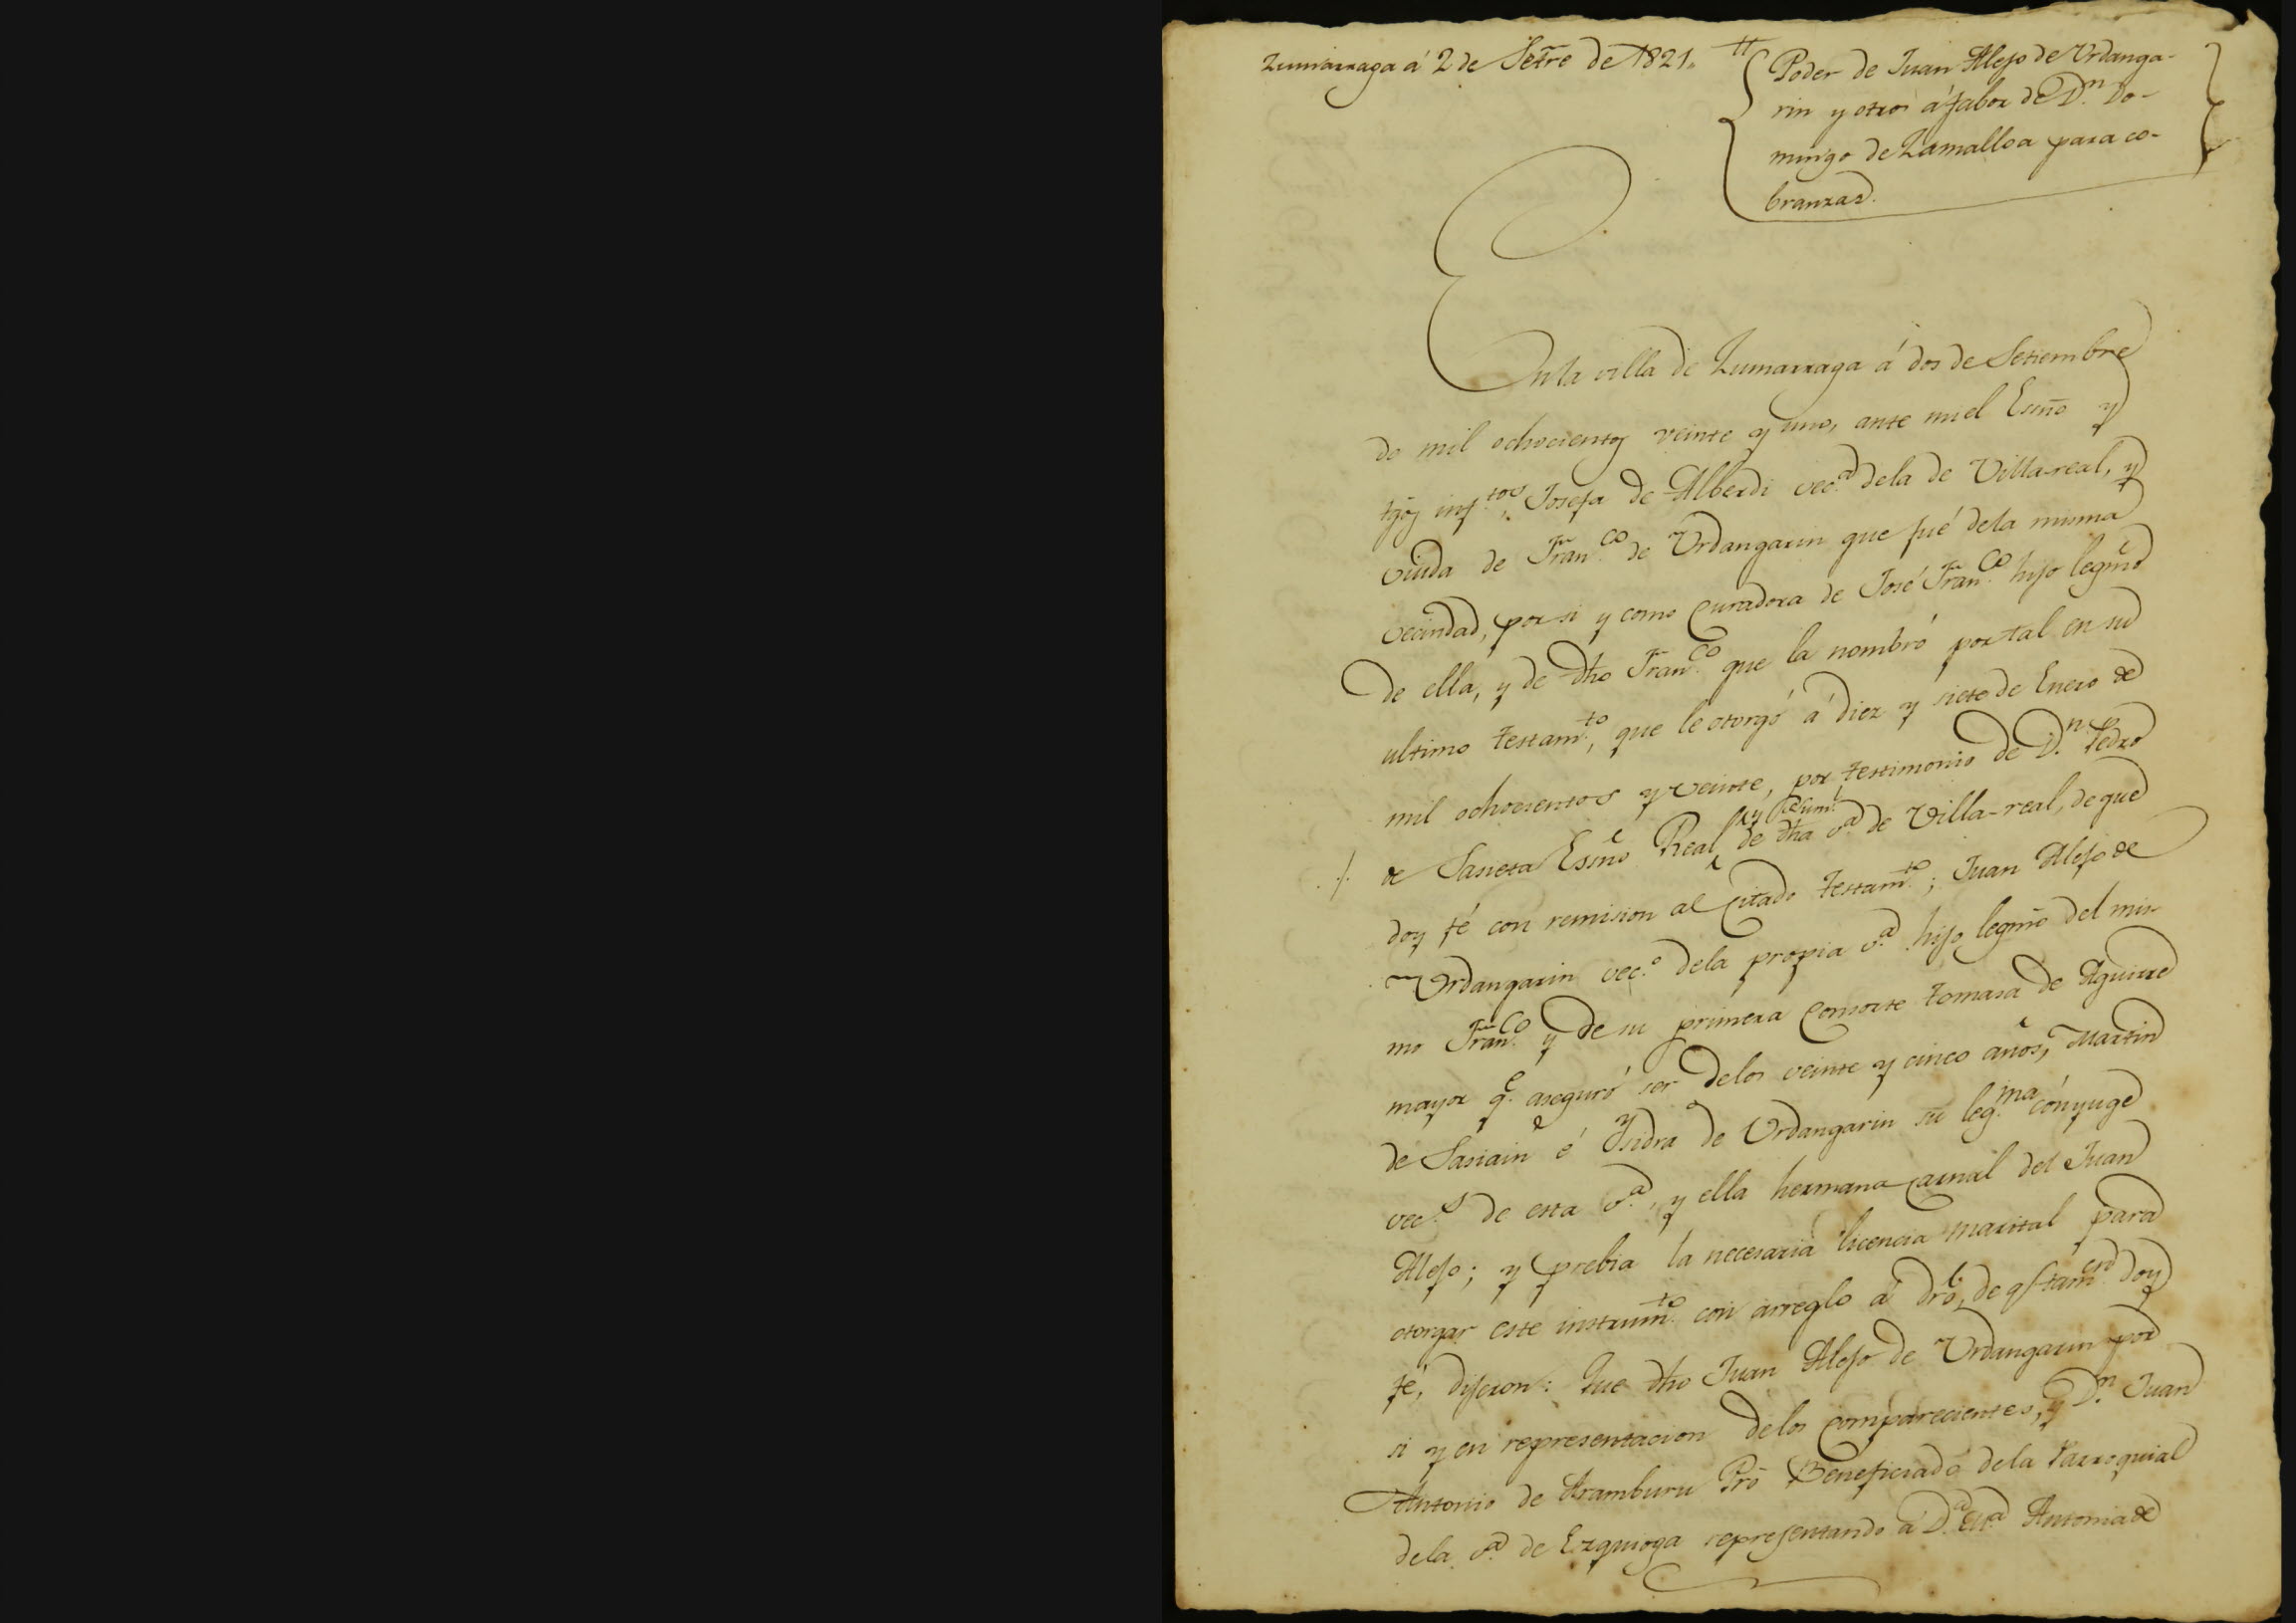 Zumarraga á 2 de Setre de 1821.
Poder de Juan Alejo de Urdanga-
rin y otros á fabor de Dn. Do-
mingo de Zamalloa para co-
branzas.
En la villa de Zumarraga á dos de Setiembre
de mil ochocientos veinte y uno, ante mi el Esno y
tgos inftos, Josefa de Alberdi veca. dela de Villa-real, y
viuda de Franco. de Urdangarin que fué dela misma
vecindad, por si y como Curadora de José Franco. hijo legmo
de ella, y de dho Franco. que la nombró por tal en su
ultimo testamto, que le otorgó á diez y siete de Enero de
mil ochocientos y veinte, por testimonio de Dn. Pedro
de Sasieta Esno Real de dha va. de Villa-real, de que
doy fé con remision al citado testamto.; Juan Alejo de
Urdangarin veco. dela propia va. hijo legmo del mis-
mo Franco. y de su primera Consorte Tomasa de Aguirre
mayor qe. aseguró ser delos veinte y cinco años, Martin
de Sasiain é Ysidra de Urdangarin su legma. cónyuge
vecs. de esta va., y ella hermana carnal del Juan
Alejo; y prebia la necesaria licencia marital para
otorgar este instrumto. con arreglo á dro, de q doy
fé, dijeron: Que dho Juan Alejo de Urdangarin por
si y en representacion delos comparecientes, y Dn. Juan
Antonio de Aramburu Pro Beneficiado dela Parroquial
dela va. de Ezquioga representando á Da. Ma. Antonia de